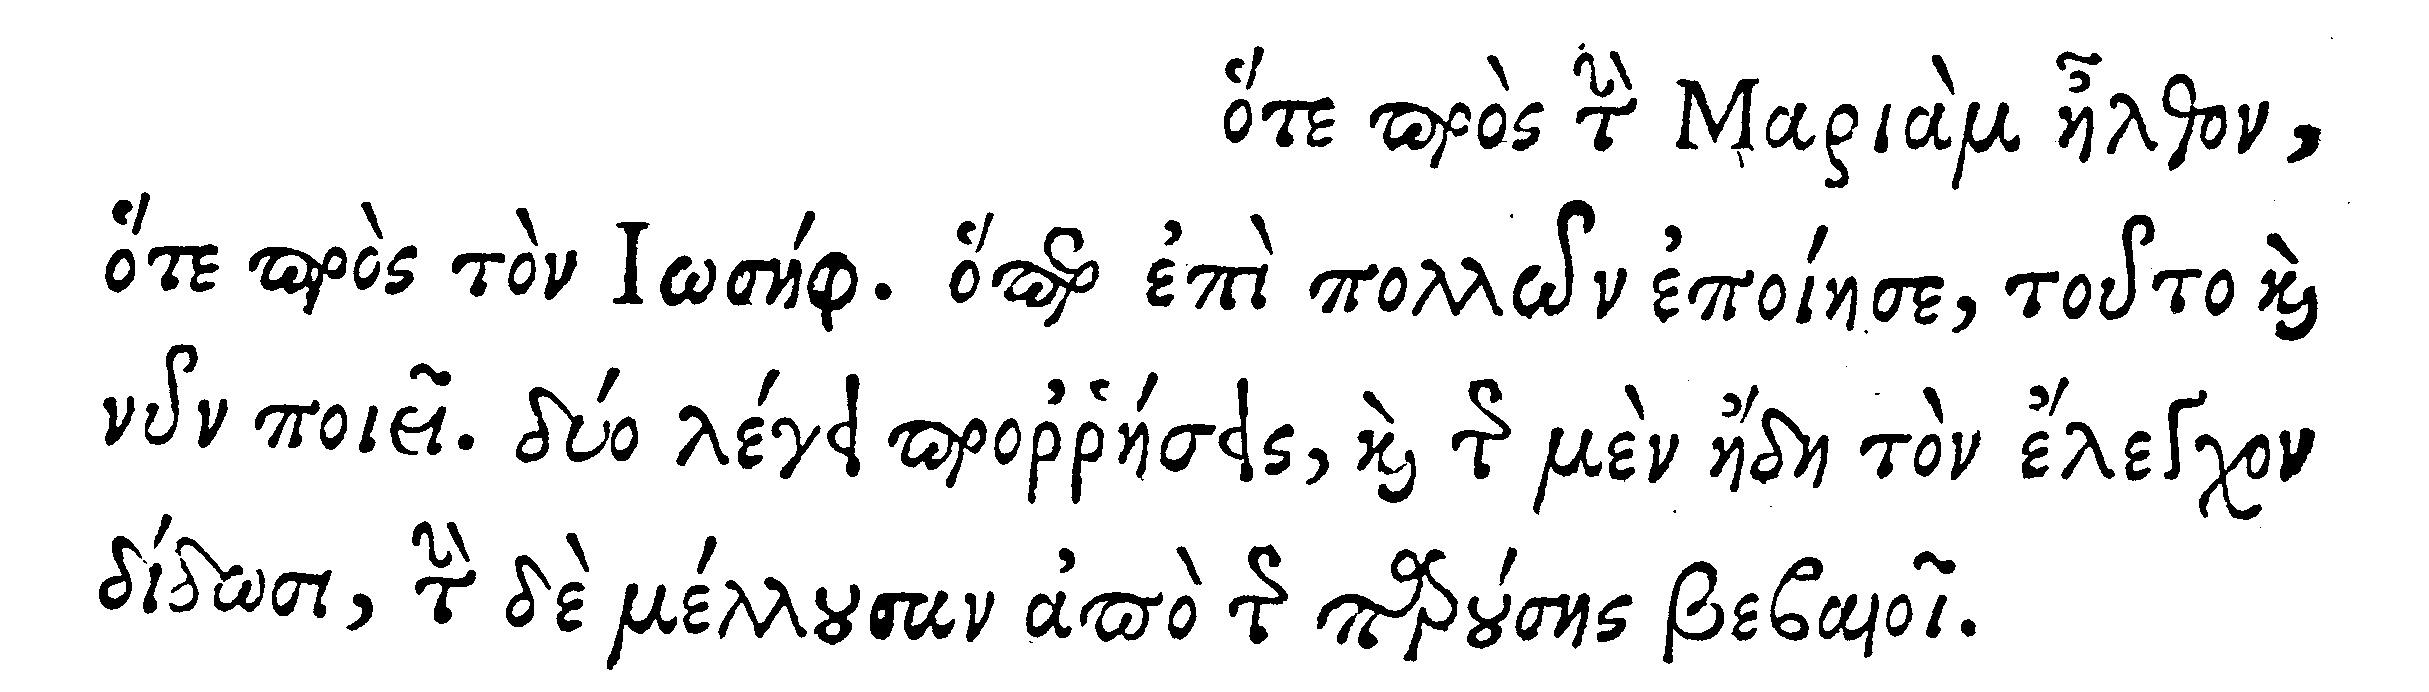 ὅτε πρὸς τὴν Μαριὰμ ἦλθον,
ὅτε πρὸς τὸν Ιωσήφ. ὅπερ ἐπὶ πολλῶν ἐποίησε, τοῦτο καὶ
νῦν ποιεῖ. δύο λέγει προῤῥήσεις, καὶ τῆς μὲν ἤδη τὸν ἔλεγχον
δίδωσι, τὴν δὲ μέλλουσαν ἀπὸ τῆς παρούσης βεβαιοῖ.